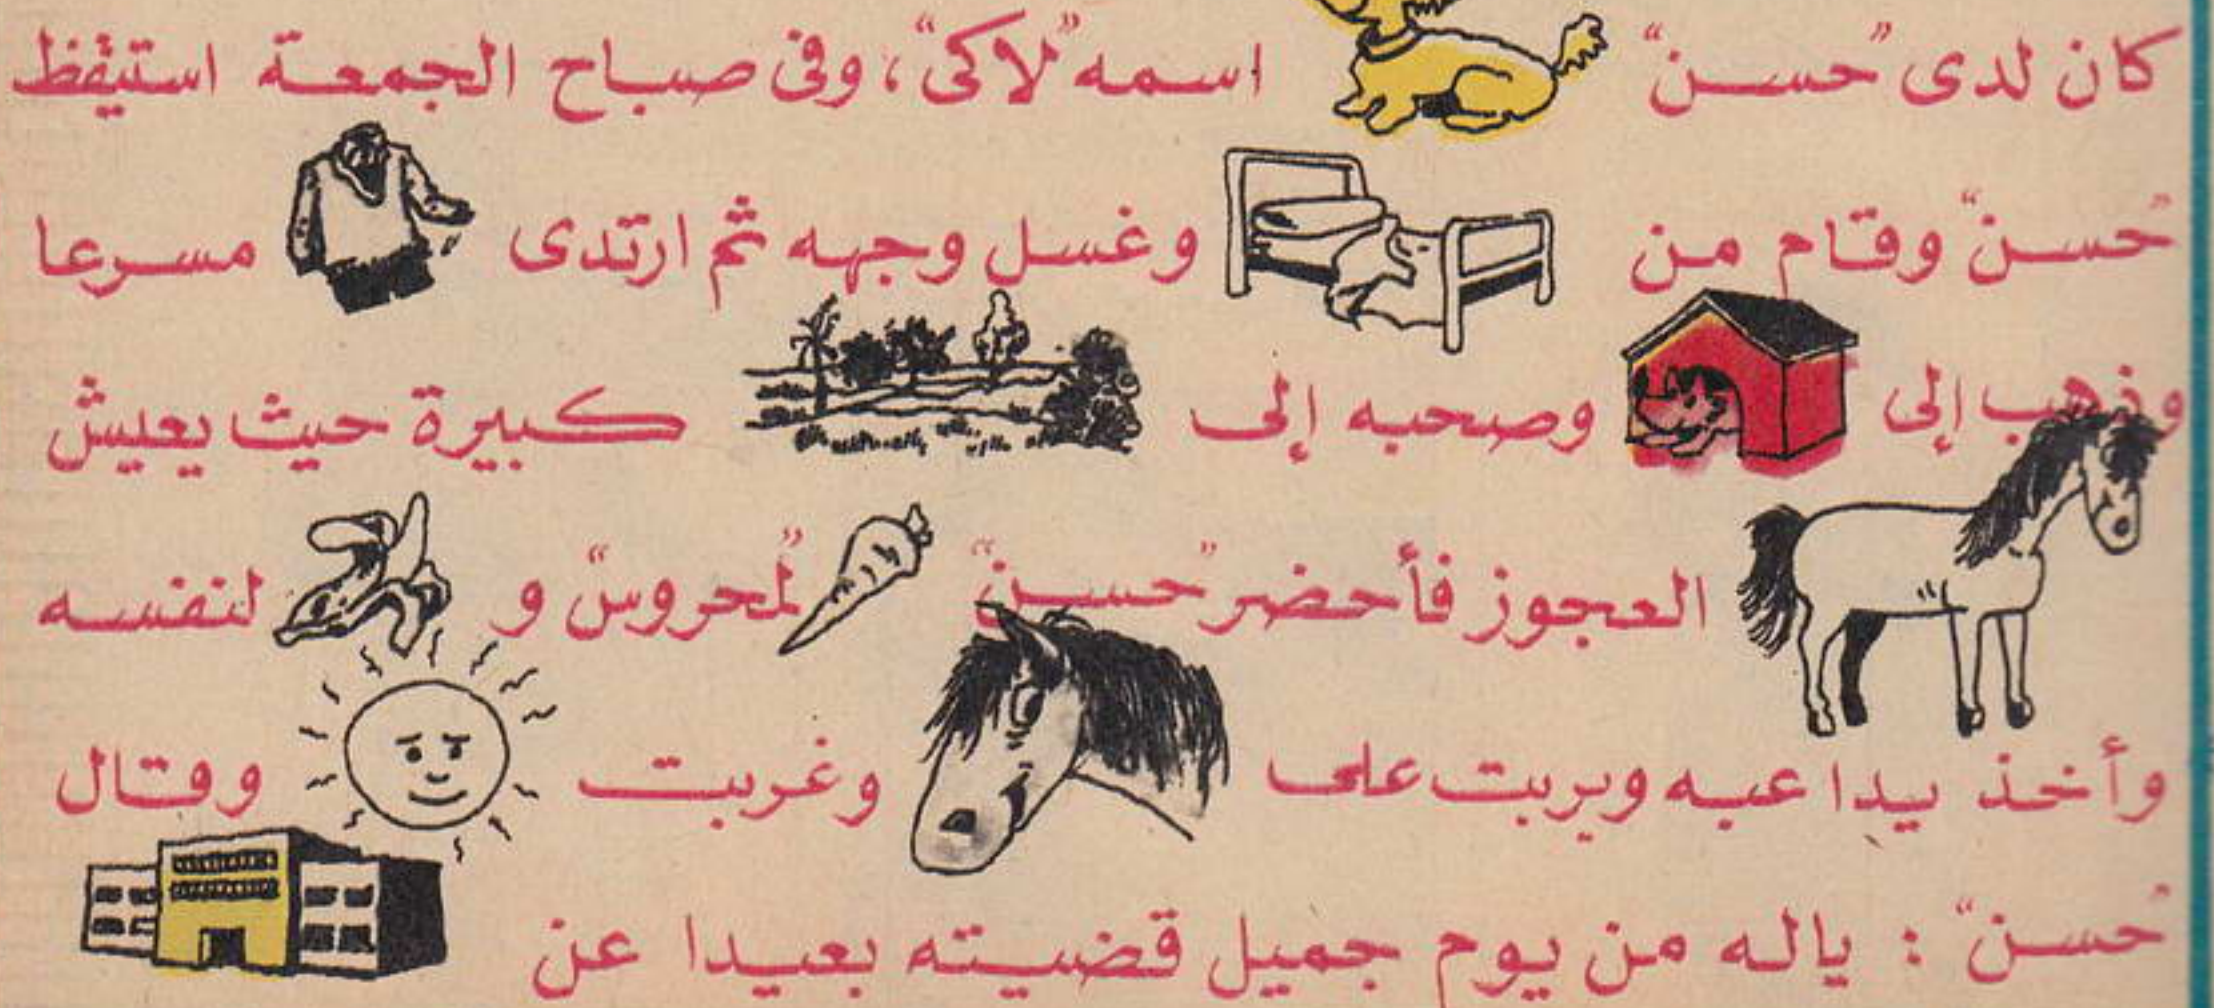 كان لدى "حسن" اسمه "لاكى"، وفى صباح الجمعة استيقظ
"حسن" وقام من وغسل وجهه ثم ارتدى مسرعا
وذهب إلى وصحبه إلى كبيرة حيث يعيش
العجوز فأحضر "حسن" "لمحروس" و لنفسه
وأخذ يداعبه ويربت على وغربت وقال
"حسن" : ياله من يوم جميل قضيته بعيدا عن